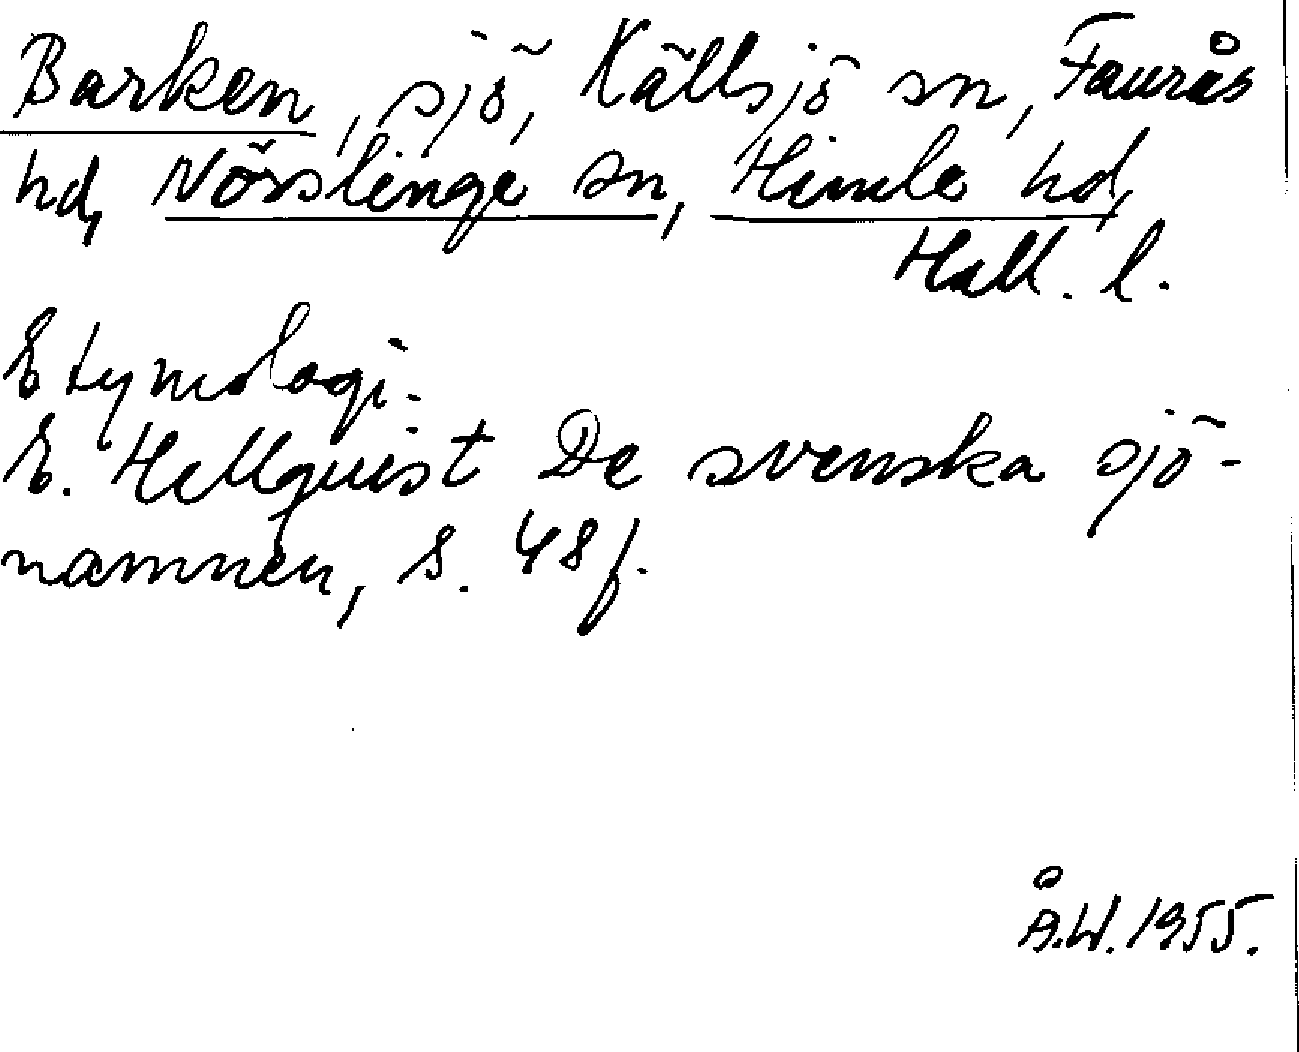 Barken, sjö, Källsjö sn, Faurås
hd, Nösslinge sn, Himle hd,
Hall. l.
Etymologi:
E. Hellquist De svenska sjö-
namnen, s. 48 f.
Å.W. 1955.